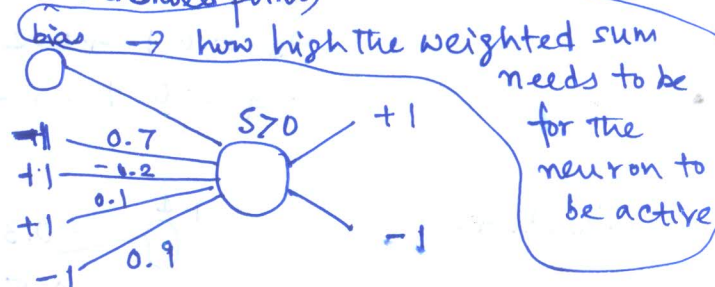 bias → how high the weighted sum
needs to be
for the
neuron to
be active
S>0
+1
-1
0.7
+1
+1
0.1
-1
0.9